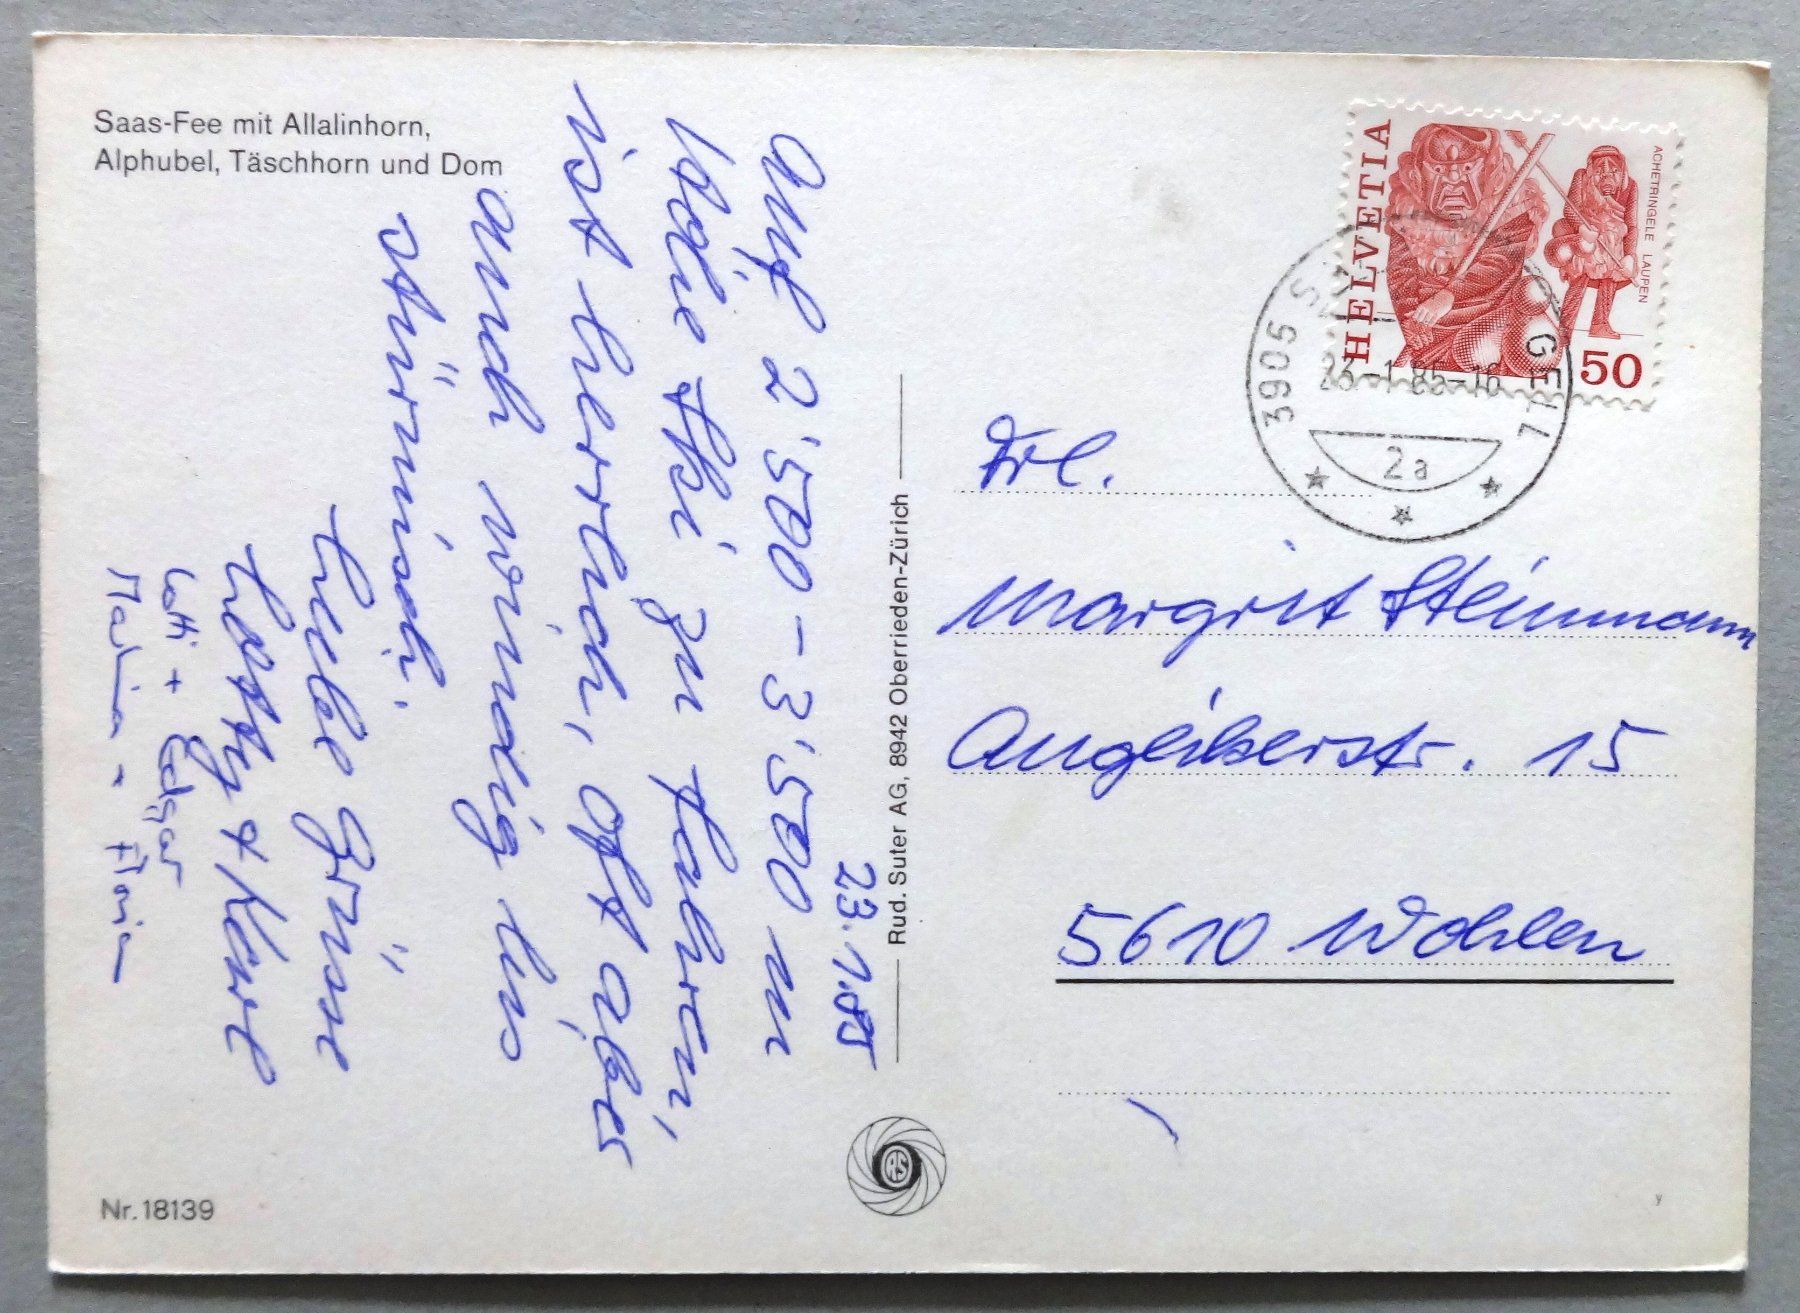 Saas-Fee mit Allalinhorn,
Alphubel, Täschhorn und Dom
23.1.85
Auf 2'500 – 3'500 m
Höhe Ski zu fahren,
ist herrlich, oft aber
auch windig bis
stürmisch.
Liebe Grüsse
+ Kurt
Lotti + Edgar
Rud. Suter AG, 8942 Oberrieden-Zürich
RS
HELVETIA
ACHETRINGELE LAUPEN
50
3905 S GELL
23.-1.85-16
2a
Frl.
Margrit Steinmann
Anglikerstr. 15
5610 Wohlen
Nr. 18139